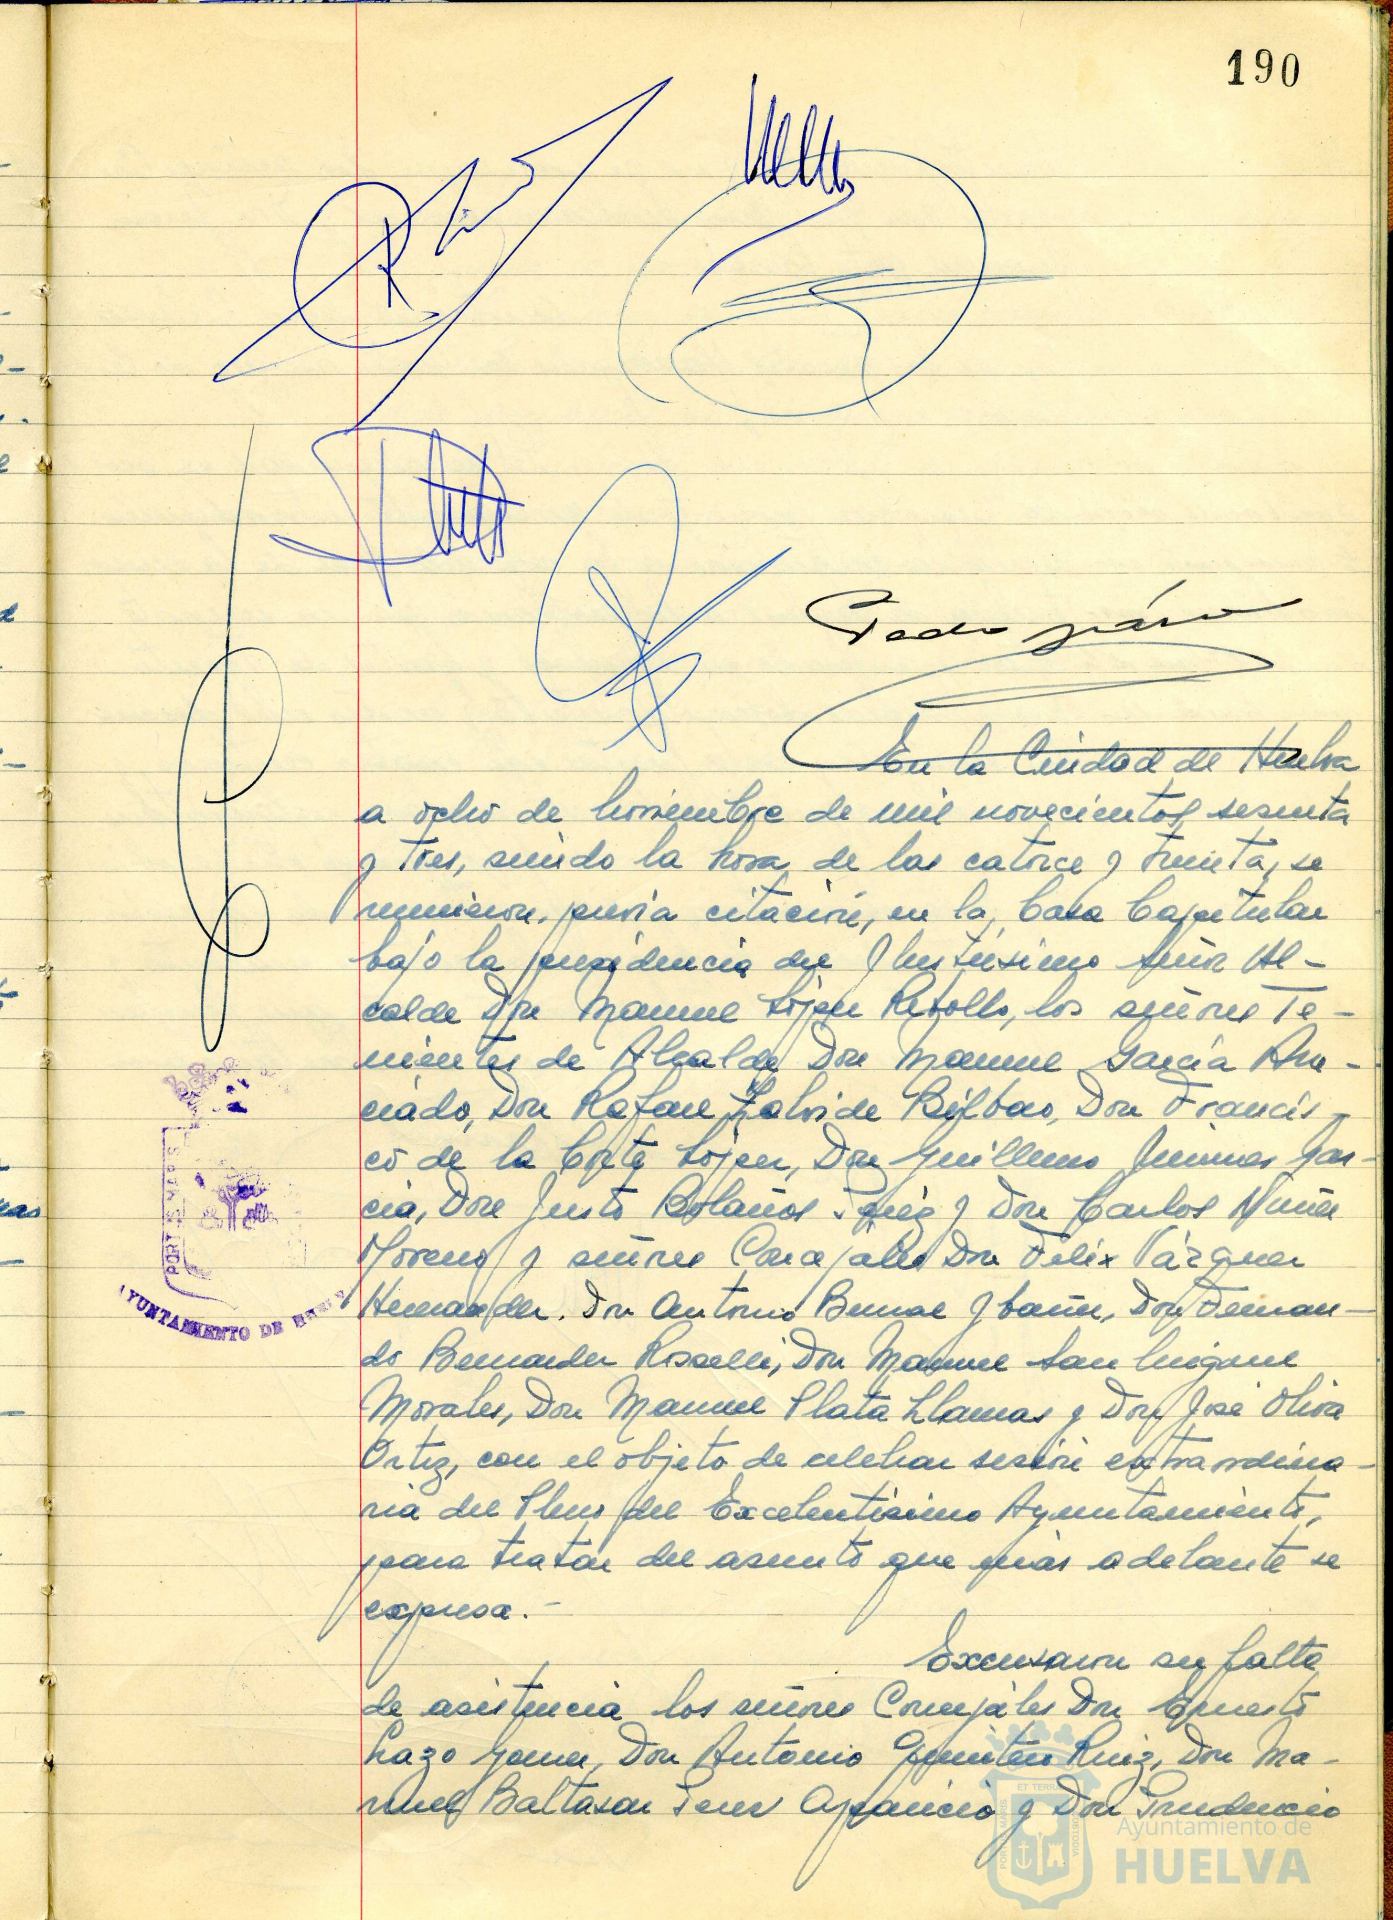 190
Pedro
En la Ciudad de Huelva
a ocho de noviembre de mil novecientos sesenta
y tres, siendo la hora de las catorce y treinta, se
reunieron, previa citación, en la Casa Capitular
bajo la presidencia del Ilustrísimo señor Al-
calde Don Manuel López Rebollo, los señores Te-
nientes de Alcalde Don Manuel García
Don Rafael Zalvide Bilbao, Don Francis-
co de la Corte López, Don Guillermo Jiménez Gar-
cía, Don Justo Bolaños y Don Carlos Núñez
Moreno y señores Concejales Don Félix Vázquez
Hernández, Don Antonio Bernal Ybáñez, Don Fernan-
do Bernández Rosselli, Don Manuel San Miguel
Morales, Don Manuel Plata Llamas y Don José Oliva
Ortiz, con el objeto de celebrar sesión extraordina-
ria del Pleno del Excelentísimo Ayuntamiento,
para tratar del asunto que más adelante se
expresa.-
Excusaron su falta
de asistencia los señores Concejales Don Ernesto
Lazo Don Antonio Ruiz, Don Ma-
nuel Baltasar Aparicio y Don Prudencio
AYUNTAMIENTO DE
Ayuntamiento de
HUELVA